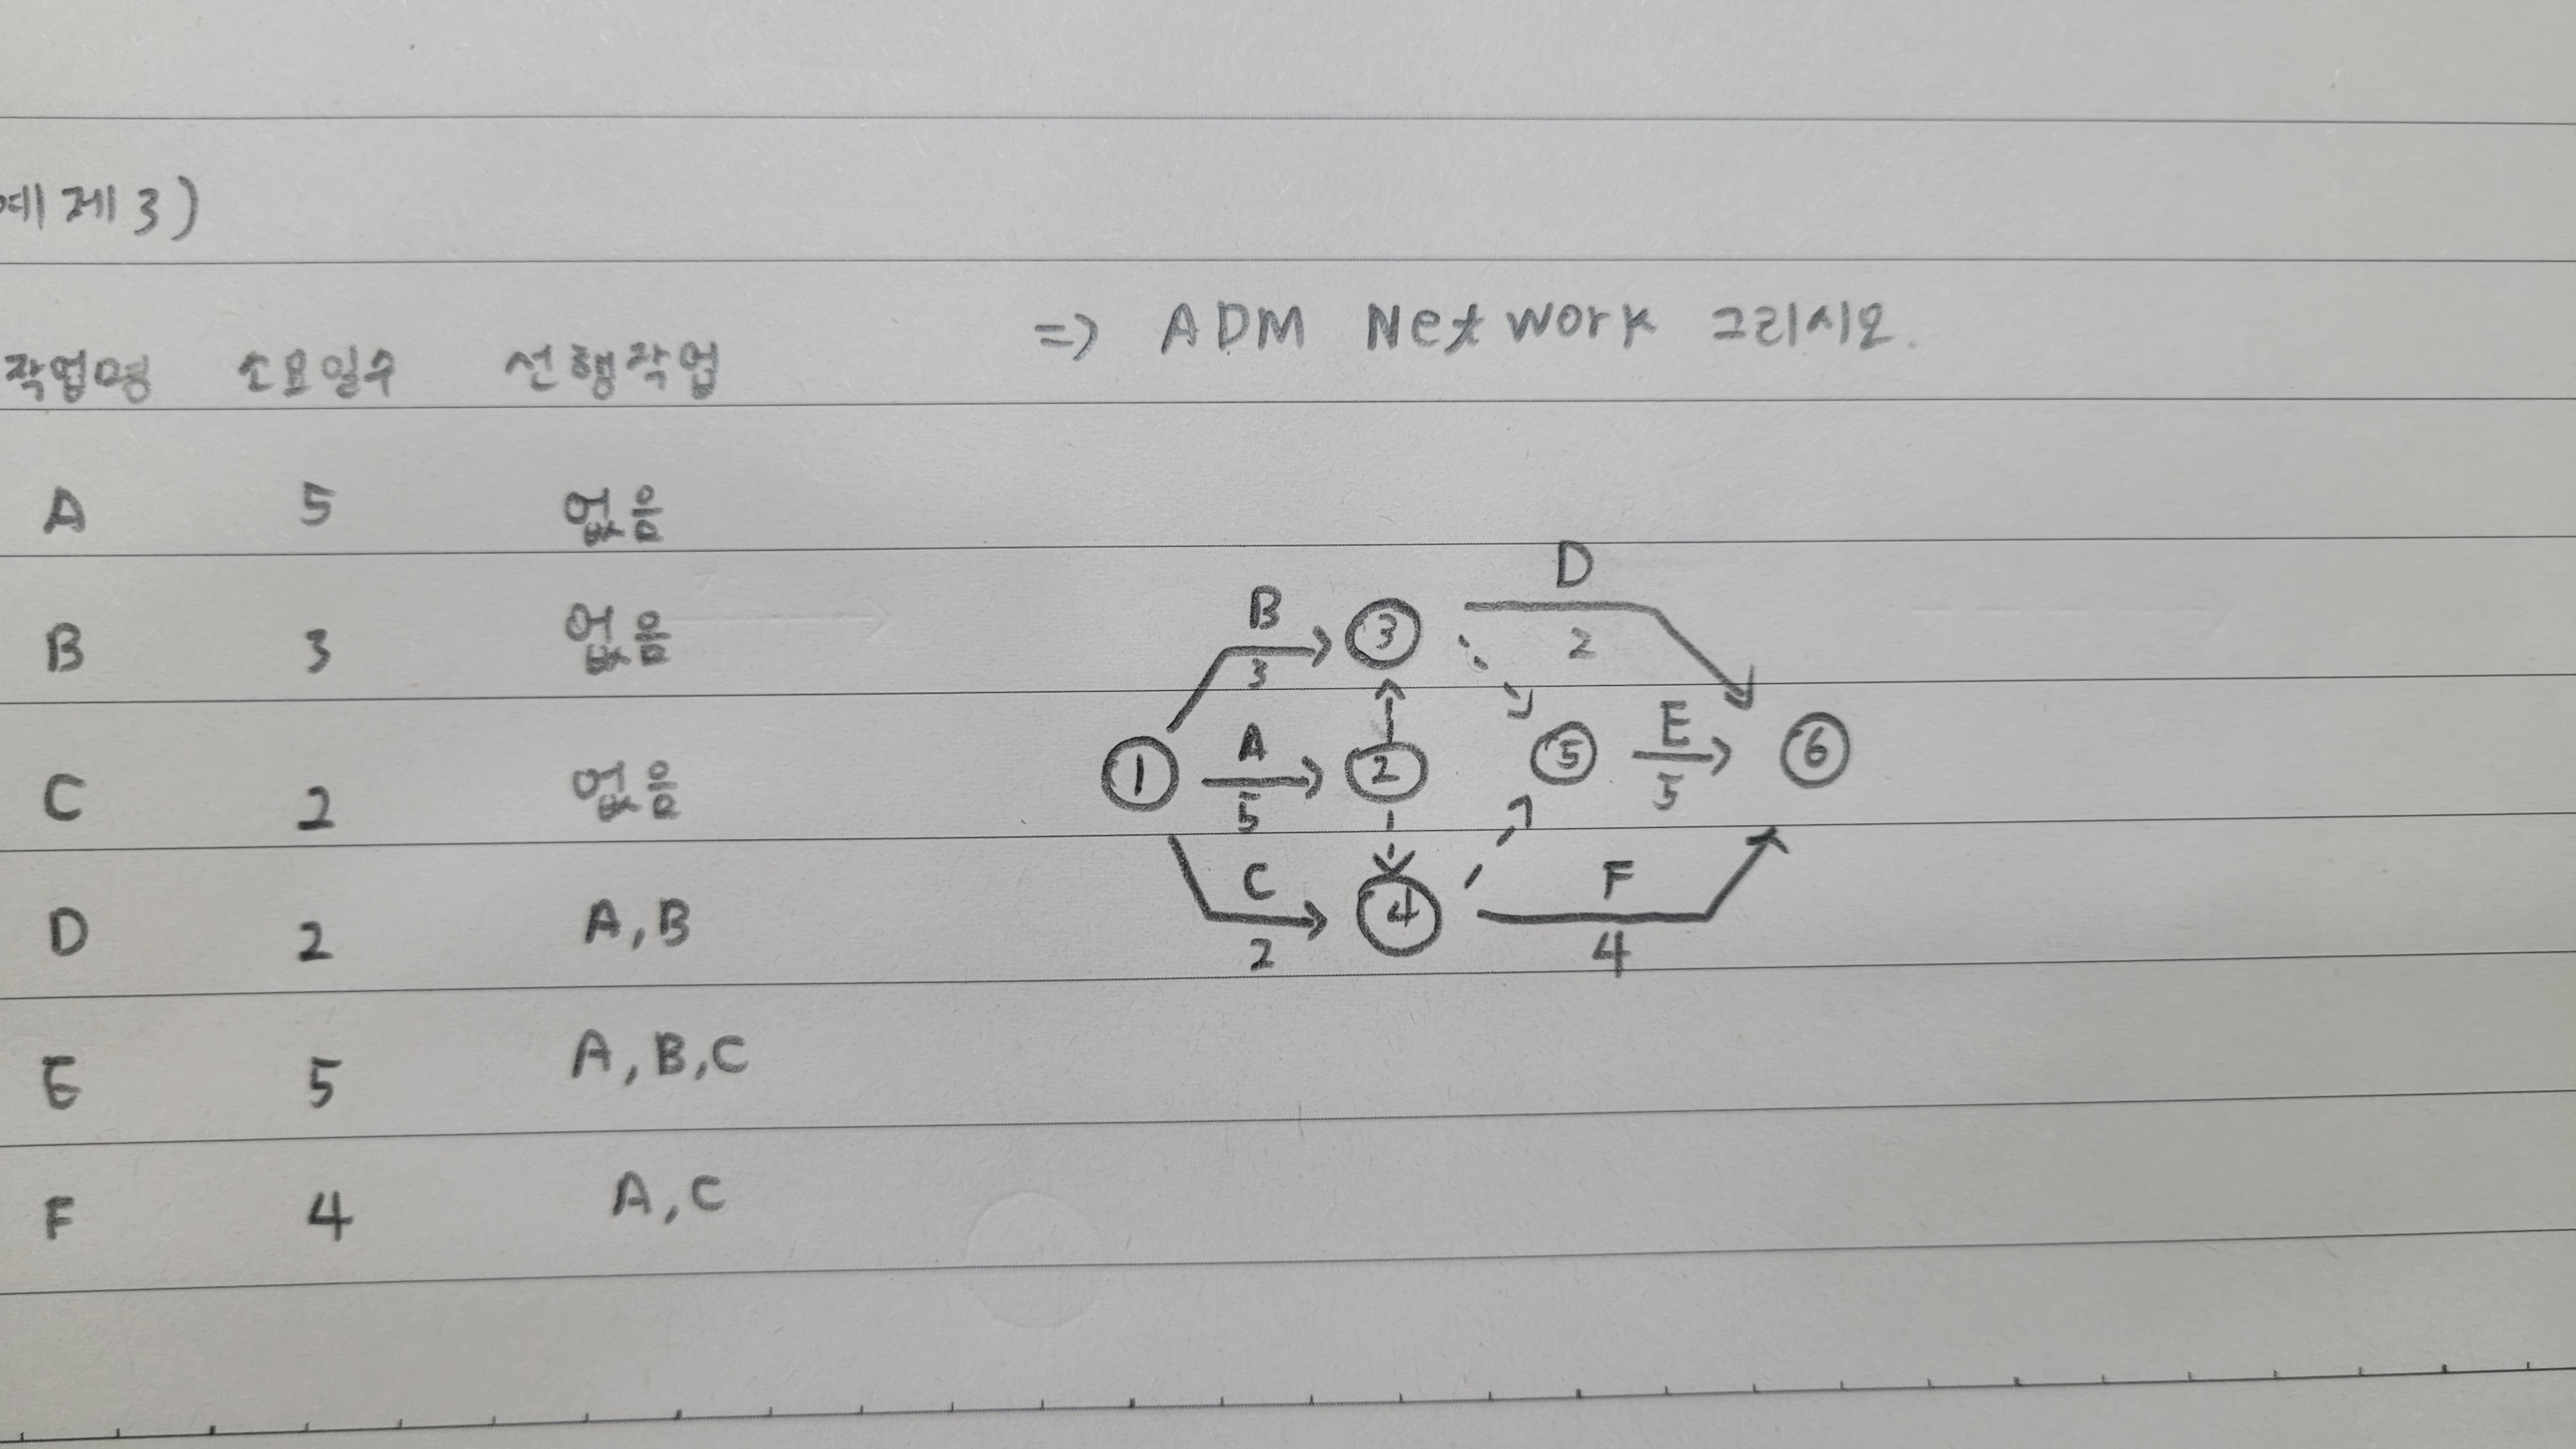 예제3)
작업명 소요일수 선행작업 => ADM Network 그리시오.
A 5 없음
B 3 없음
C 2 없음
D 2 A,B
E 5 A,B,C
F 4 A,C
D
B 3 2
3
A E
1 2 5 6
5 5
C F
4
2 4